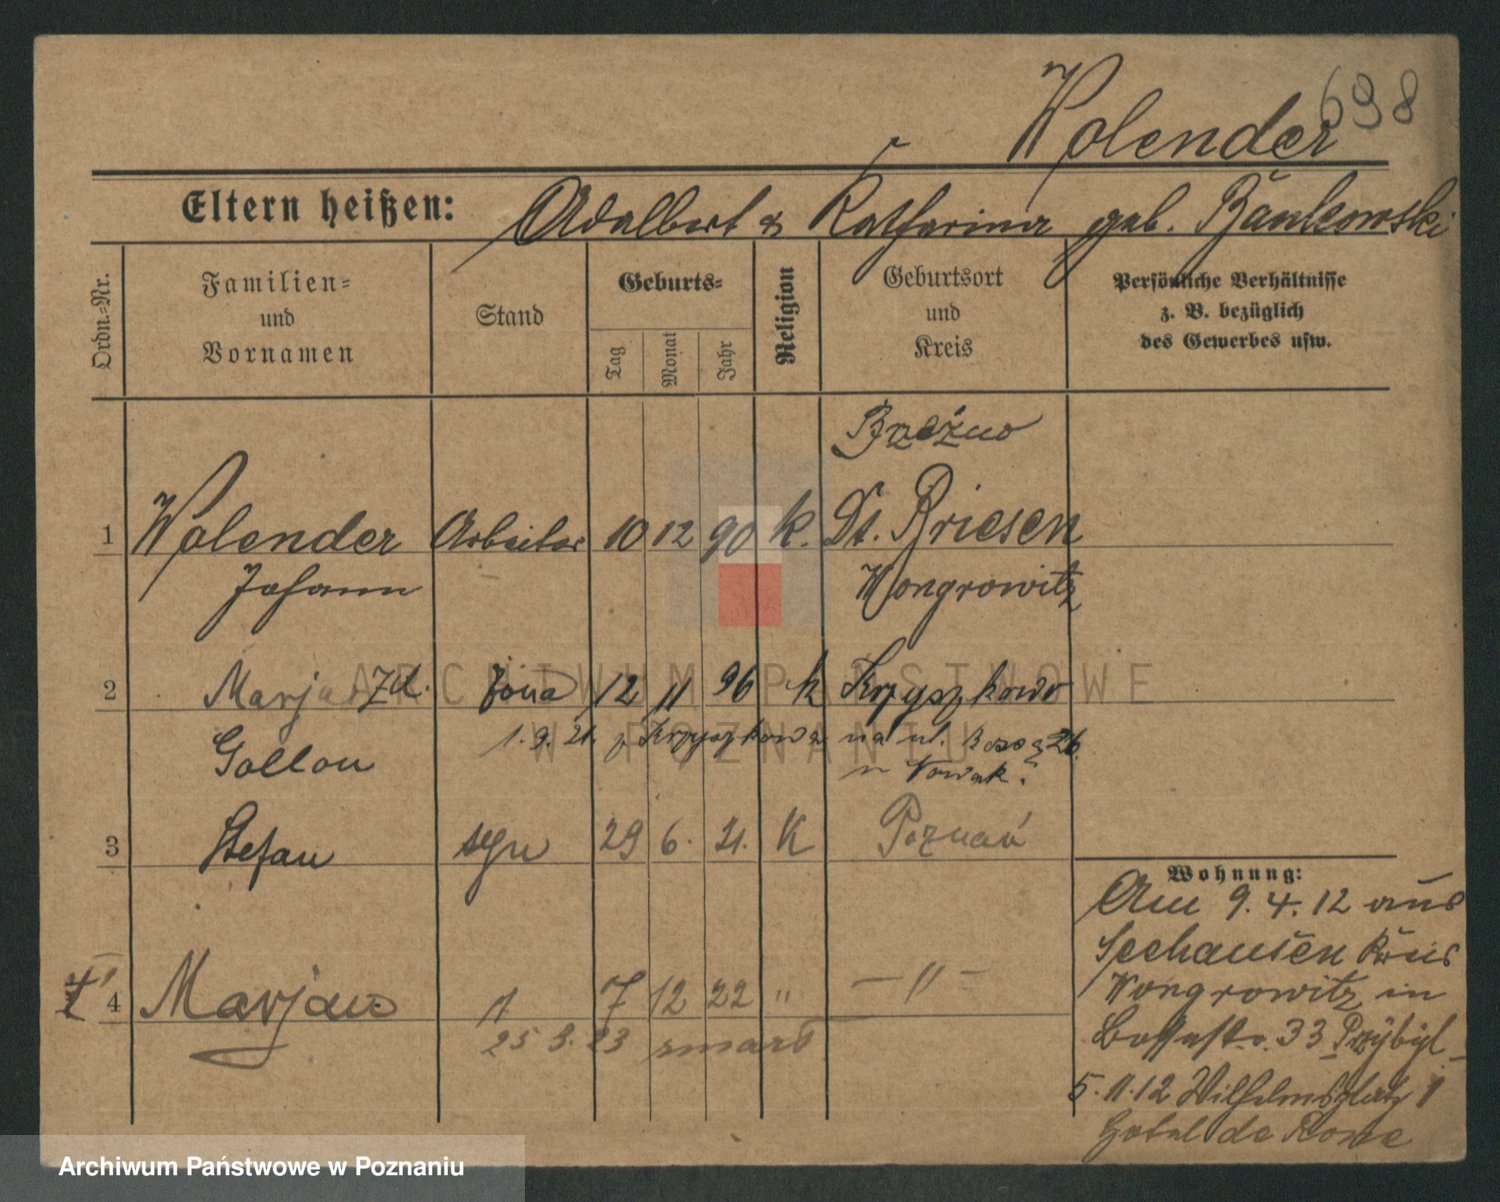 698
Wolender
Eltern heißen: Adalbert & Katharina geb. Bankowski
Ordn.=Nr.
Familien=
und
Vornamen
Stand
Geburts=
Tag
Monat
Jahr
Religion
Geburtsort
und
Kreis
Persönliche Verhältnisse
z. B. bezüglich
des Gewerbes usw.
Brzeźno
1 Wolender Arbeiter 10 12 90 k. Dt. Briesen
Johann Wongrowitz
2 Marja zd. żona 12 11 96 k Krzyszkowo
1.9.21. z Krzyszkowa na ul. 26.
Gollon Nowak.
3 Stefan syn 29 6. 21. K Poznań
Wohnung:
Am 9.4.12 aus
Seehausen Kreis
4 Marjan 11 7 12 22 " — " —
Wongrowitz in
25 3. 23 zmarł
33 Przybyl
5.11.12 Wilhelmsplatz 1
Hotel de Rome
ARCHIWUM PAŃSTWOWE
W POZNANIU
Archiwum Państwowe w Poznaniu